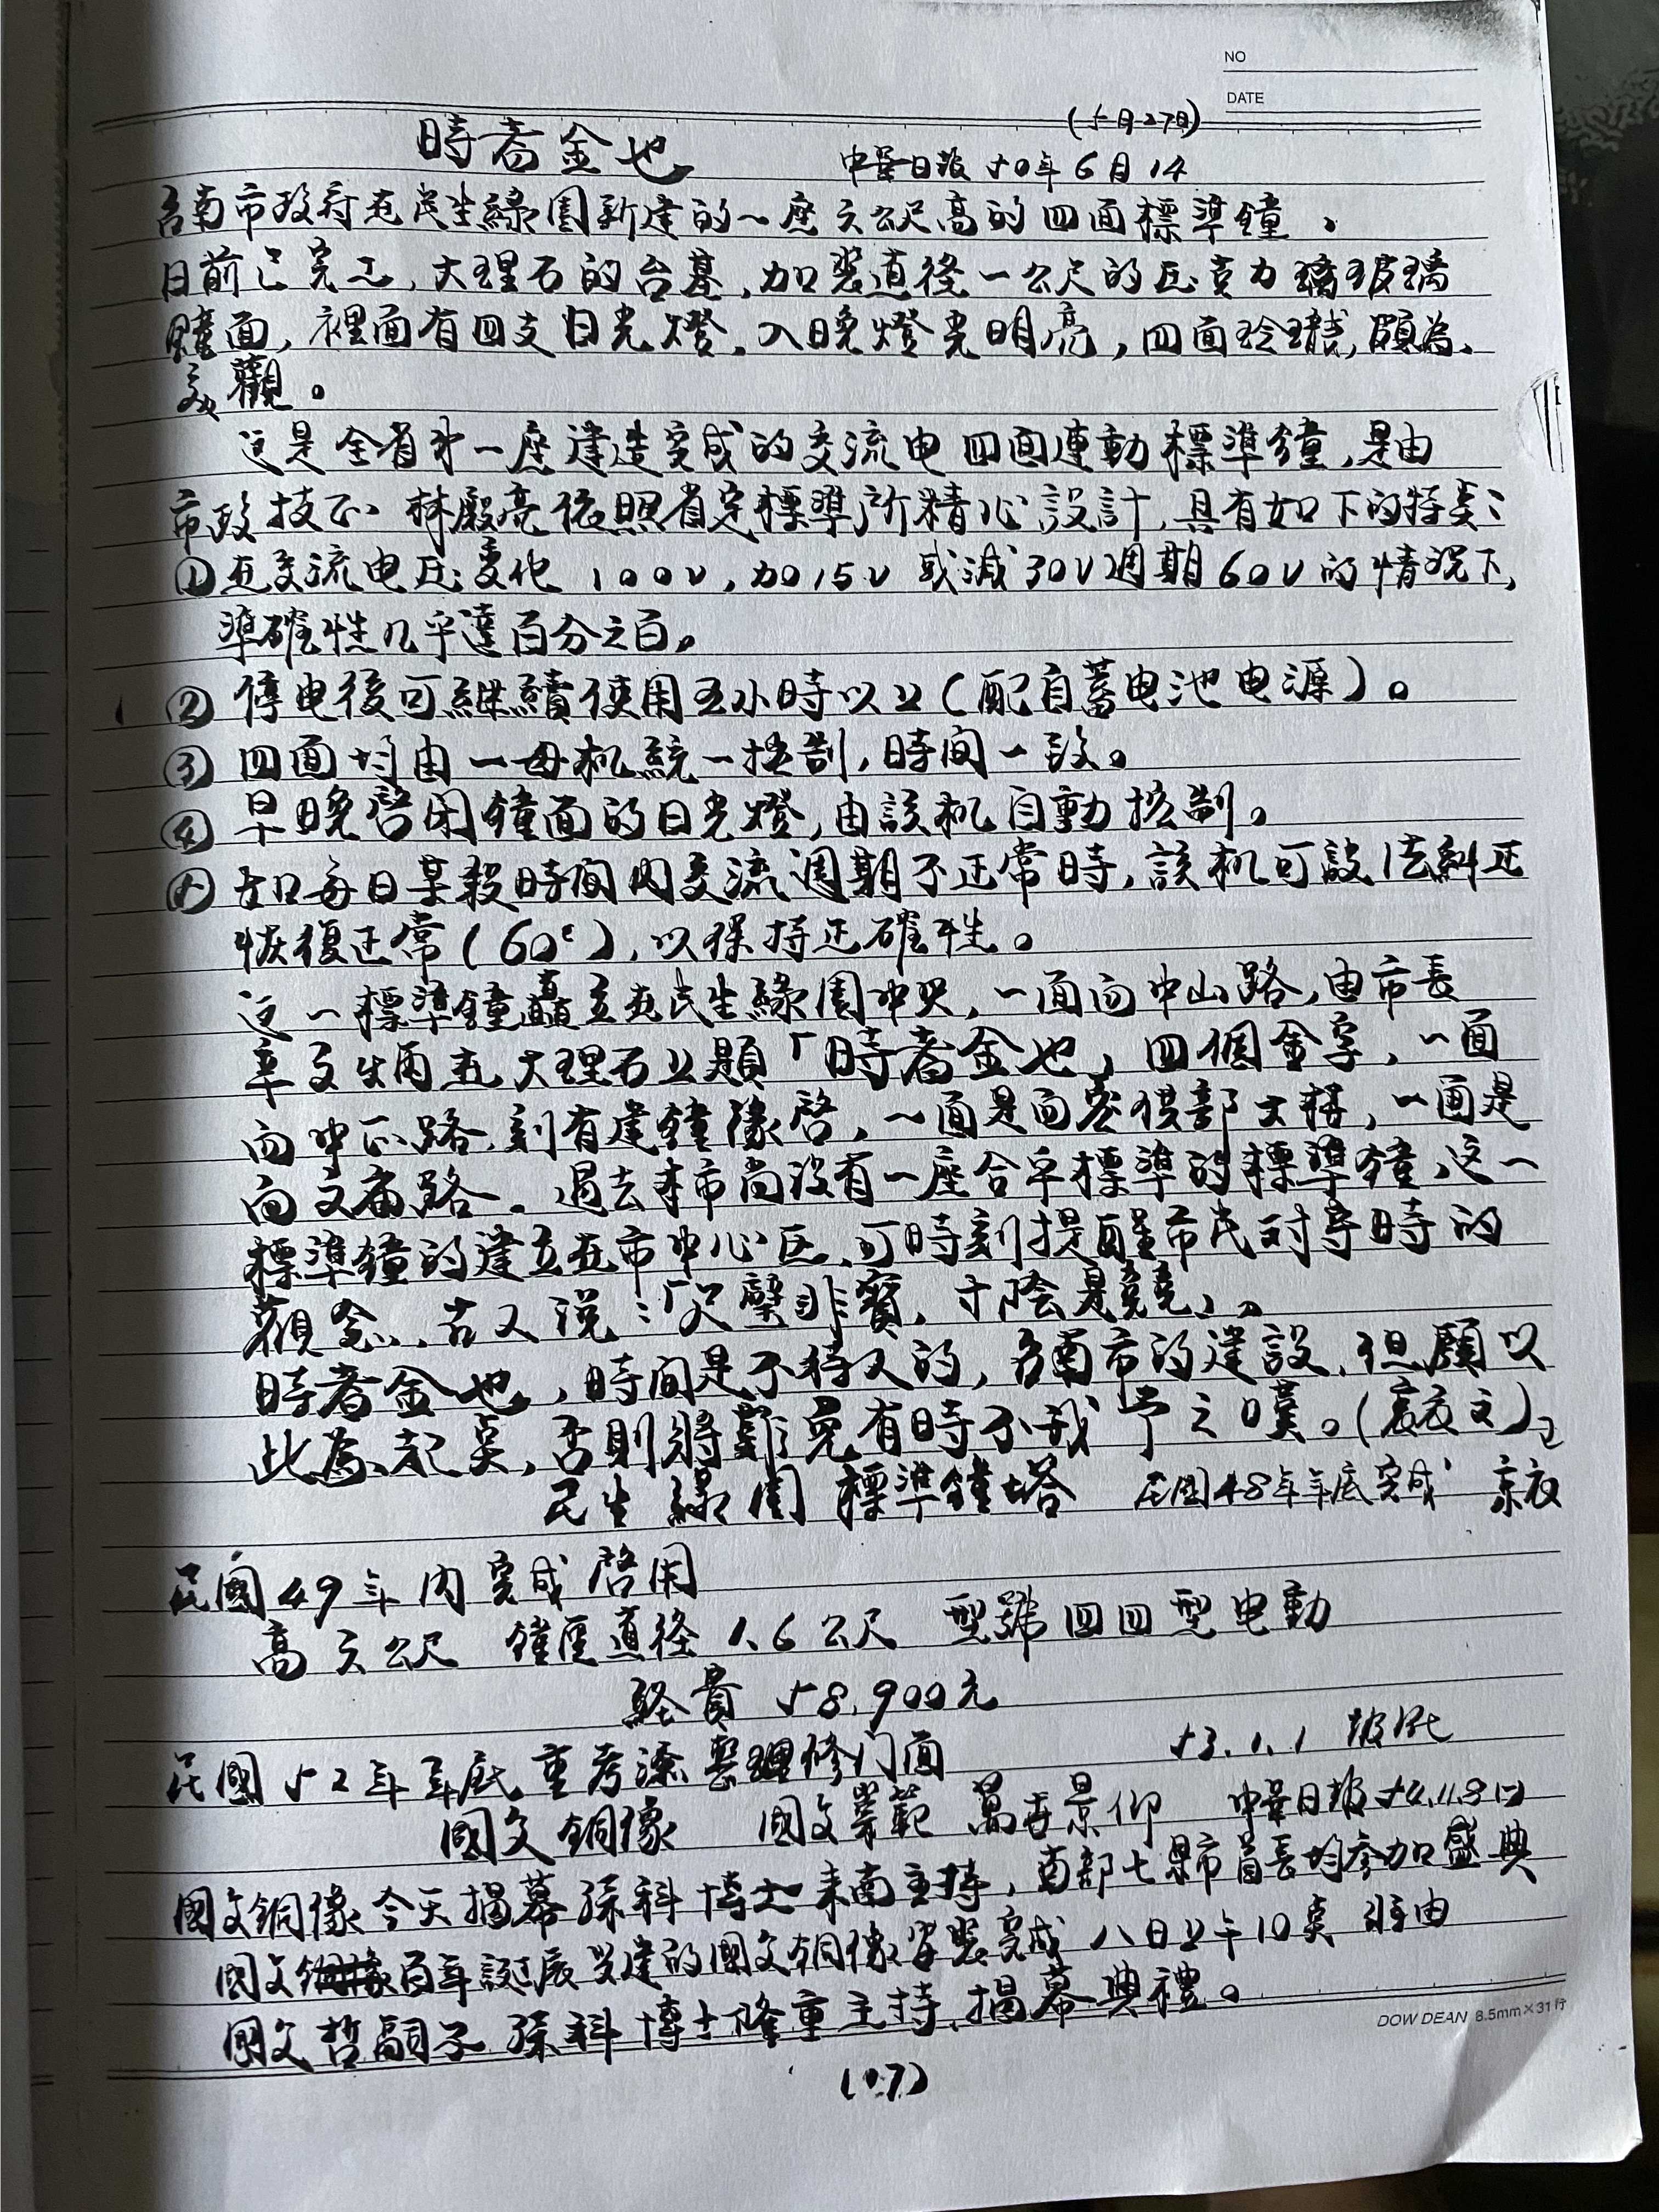 NO
DATE
(5月27日)
時者金也
中華日報 50年6月14
台南市政府在民生綠園新建的一座六公尺高的四面標準鐘.
日前已完工,大理石的台基,加裝直徑一公尺的压克力璃玻璃
鐘面,裡面有四支日光燈.入晚燈光明亮,四面玲瓏,頗為
美觀。
這是全省第一座建造完成的交流电四面連動標準鐘,是由
市政技正 林殿亮依照省定標準所精心設計,具有如下的特點:
①在交流电压變化 100V,加15V 或減30V週期60V的情況下,
準確性几乎達百分之百。
② 停电後可繼續使用五小時以上(配自蓄电池电源)。
③ 四面均由一母机統一控制,時间一致。
④ 早晚啓闭鐘面的日光燈,由該机自動控制。
⑤ 如每日某段時间內交流週期不正常時,該机可設法糾正
恢復正常(60c),以保持正確性。
這一標準鐘矗立在民生綠園中央,一面向中山路,由市長
辛文炳在大理石上題「時者金也」四個金字,一面
向中正路,刻有建鐘緣啓,一面是向空俱部大樓,一面是
向文廟路.過去本市尚没有一座合乎標準的標準鐘,這一
標準鐘的建立在市中心区,可時刻提醒市民对守時的
觀念,古人说:「尺璧非寶,寸陰是競」。
時者金也,時间是不待人的,台南市的建設,但願以
此為起點,否則將難免有時不我予之嘆。(京衣文)
民生綠園標準鐘塔 民國48年年底完成 京衣
民國49年內完成啓用
高六公尺 鐘面直徑1.6公尺 型號四四型电動
経費 58,900元
民國52年年底重考漆整理修门面 53.1.1
國父銅像 國父崇範 萬世景仰 中華日報54.11.8日
國父銅像今天揭幕孫科博士來南主持,南部七縣市首長均參加盛典
國父百年誕辰興建的國父銅像安裝完成 八日上午10點 將由
國父哲嗣子孫科博士隆重主持,揭幕典禮。
DOW DEAN 8.5mm×31行
(07)